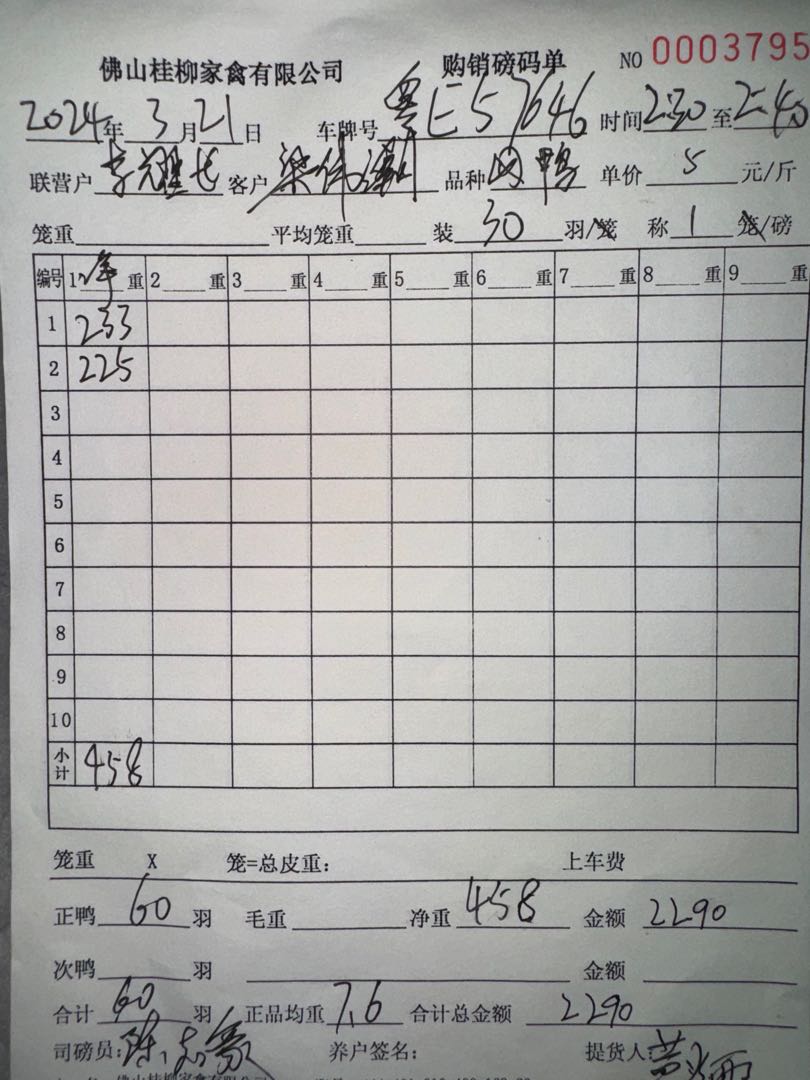 佛山桂柳家禽有限公司 购销磅码单 NO 0003795
2024年 3月21日 车牌号 粤E57646 时间 2:30 至 2:40
联营户 李耀长 客户 梁伟 品种 鸭 单价 5 元/斤
笼重 平均笼重 装 30 羽/笼 称 1 笼/磅
编号 1 净 重 2 重 3 重 4 重 5 重 6 重 7 重 8 重 9 重
1 233
2 225
3
4
5
6
7
8
9
10
小计 458
笼重 X 笼=总皮重: 上车费
正鸭 60 羽 毛重 净重 458 金额 2290
次鸭 羽 金额
合计 60 羽 正品均重 7.6 合计总金额 2290
司磅员: 陈志 养户签名: 提货人: 黄
佛山桂柳家禽有限公司